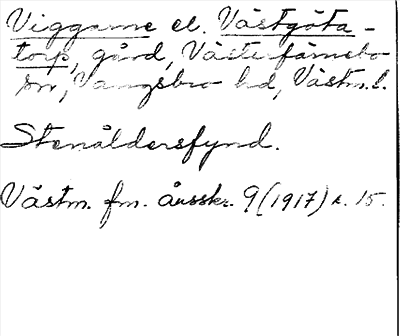 Viggarne el. Västgöta-
torp, gård, Västerfärnebo
sn, Vangsbro hd, Västm. l.
Stenåldersfynd.
Västm. fm. årsskr. 9 (1917) s. 15.